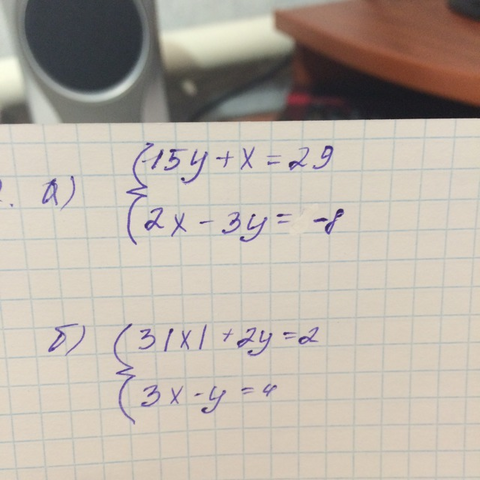 а) {15y+x=29
{2x-3y= -8
б) {3|x|+2y=2
{3x-y=4